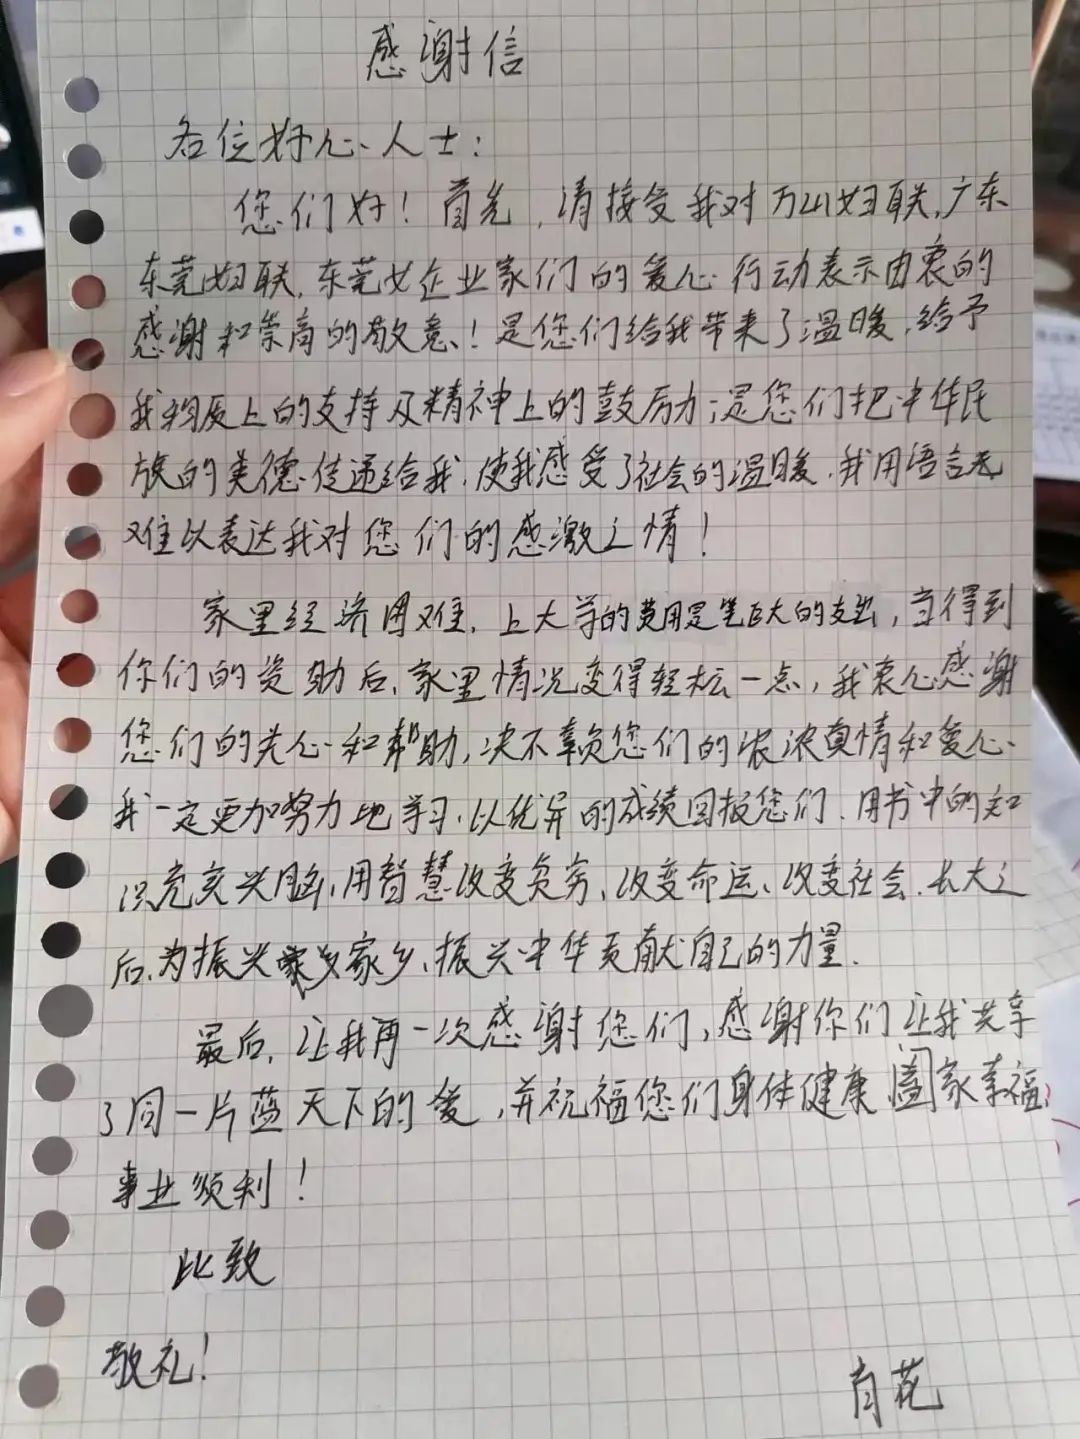 感谢信
各位好心人士:
您们好!首先,请接受我对万山妇联,广东
东莞妇联,东莞女企业家们的爱心行动表示由衷的
感谢和崇高的敬意!是您们给我带来了温暖,给予
我物质上的支持及精神上的鼓励;是您们把中华民
族的美德传递给我,使我感受了社会的温暖,我用语言无
难以表达我对您们的感激之情!
家里经济困难,上大学的费用是笔巨大的支出,当得到
你们的资助后,家里情况变得轻松一点,我衷心感谢
您们的关心和帮助,决不辜负您们的浓浓真情和爱心
我一定更加努力地学习,以优异的成绩回报您们,用书中的知
识充实头脑,用智慧改变贫穷、改变命运、改变社会.长大之
后,为振兴家乡,振兴中华贡献自己的力量.
最后,让我再一次感谢您们,感谢你们让我共享
了同一片蓝天下的爱,并祝福您们身体健康 阖家幸福,
事业顺利!
此致
敬礼!
肖花